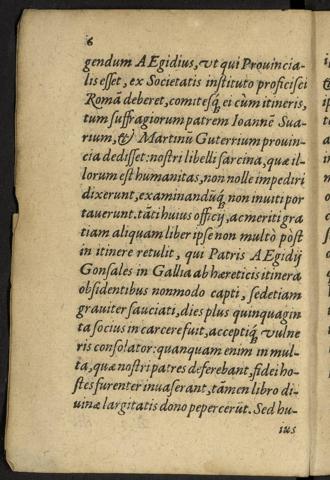 6
gendum AEgidius, vt qui Prouincia-
lis esset, ex Societatis instituto proficisci
Romã deberet, comitesq́ ei cùm itineris,
tum suffragiorum patrem Ioannẽ Sua-
rium, & Martinũ Guterrium prouin-
cia dedisset: nostri libelli sarcina, quæ il-
lorum est humanitas, non nolle impediri
dixerunt, examinandũq́ non inuiti por
tauerunt. tãti huius officij, ac meriti gra
tiam aliquam liber ipse non multò pòst
in itinere retulit, qui Patris AEgidij
Gonsales in Gallia ab hæreticis itinera
obsidentibus nonmodo capti, sed etiam
grauiter sauciati, dies plus quinquagin
ta socius in carcere fuit, acceptiq́ vulne
ris consolator: quanquam enim in mul-
ta, quæ nostri patres deferebant, fidei ho-
stes furenter inuaserant, tamen libro di-
uinæ largitatis dono pepercerũt. Sed hu-
ius